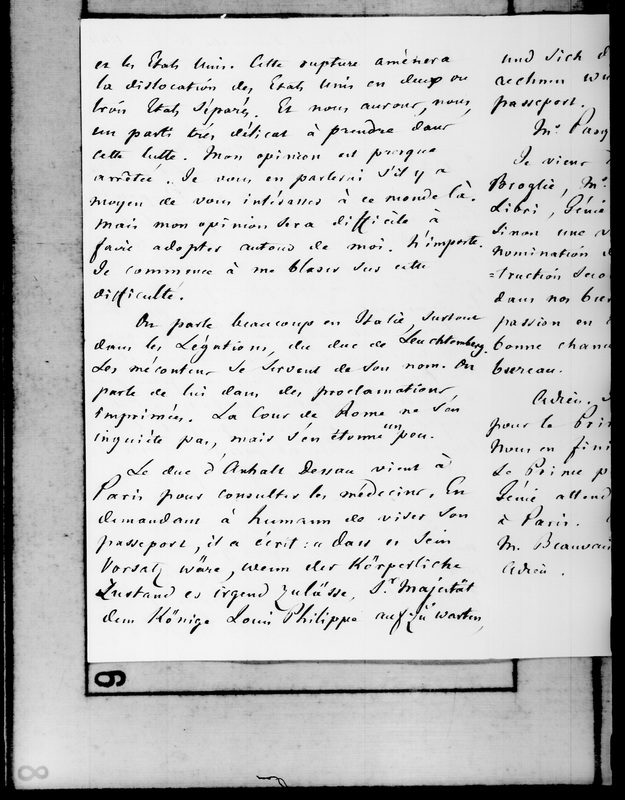 et les Etats Unis. Cette rupture amènera
la dislocation des Etats Unis en deux ou
trois Etats séparés. Et nous aurons, nous,
un parti très délicat à prendre dans
cette lutte. Mon opinion est presque
arrêtée. Je vous en parlerai s'il y a
moyen de vous intéresser à ce monde là.
Mais mon opinion sera difficile à
faire adopter autour de moi. N'importe.
Je commence à me blaser sur cette
difficulté.
On parle beaucoup en Italie, surtout
dans les Légations, du duc de Leuchtemberg.
Les mécontens se servent de son nom. On
parle de lui dans des proclamations
imprimées. La Cour de Rome ne s'en
inquiète pas, mais s'en étonne un peu.
Le duc d'Anhalt Dessau vient à
Paris pour consulter les médecins. En
demandant à humann de viser son
passeport, il a écrit: « dass es sein
Vorsatz wäre, wenn der Körperliche
Zustand es irgend zulässe, Sr Majestät
dem Könige Louis Philippe aufzuwarten,
und sich
rechnen
passeport.
Je viens
Broglie, Mr
Libri, Génie
Sinon une
nomination
=truction
dans nos
passion en
bonne
bureau.
Adieu.
pour le
Nous en
Le Prince
Génie attend
à Paris.
M. Beauvais
Adieu.
9
8